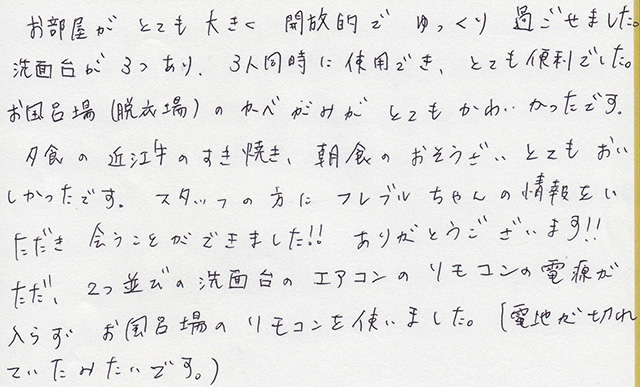 お部屋が とても 大きく 開放的で ゆっくり 過ごせました。
洗面台が 3つあり、3人同時に使用でき、とても便利でした。
お風呂場(脱衣場)の かべがみが とても かわいかったです。
夕食の 近江牛のすき焼き、朝食の おそうざい とても おい
しかったです。スタッフの方に フレブルちゃんの情報をい
ただき 会うことができました!! ありがとうございます!!
ただ、2つ並びの洗面台の エアコンの リモコンの電源が
入らず お風呂場の リモコンを使いました。(電池が切れ
ていたみたいです。)